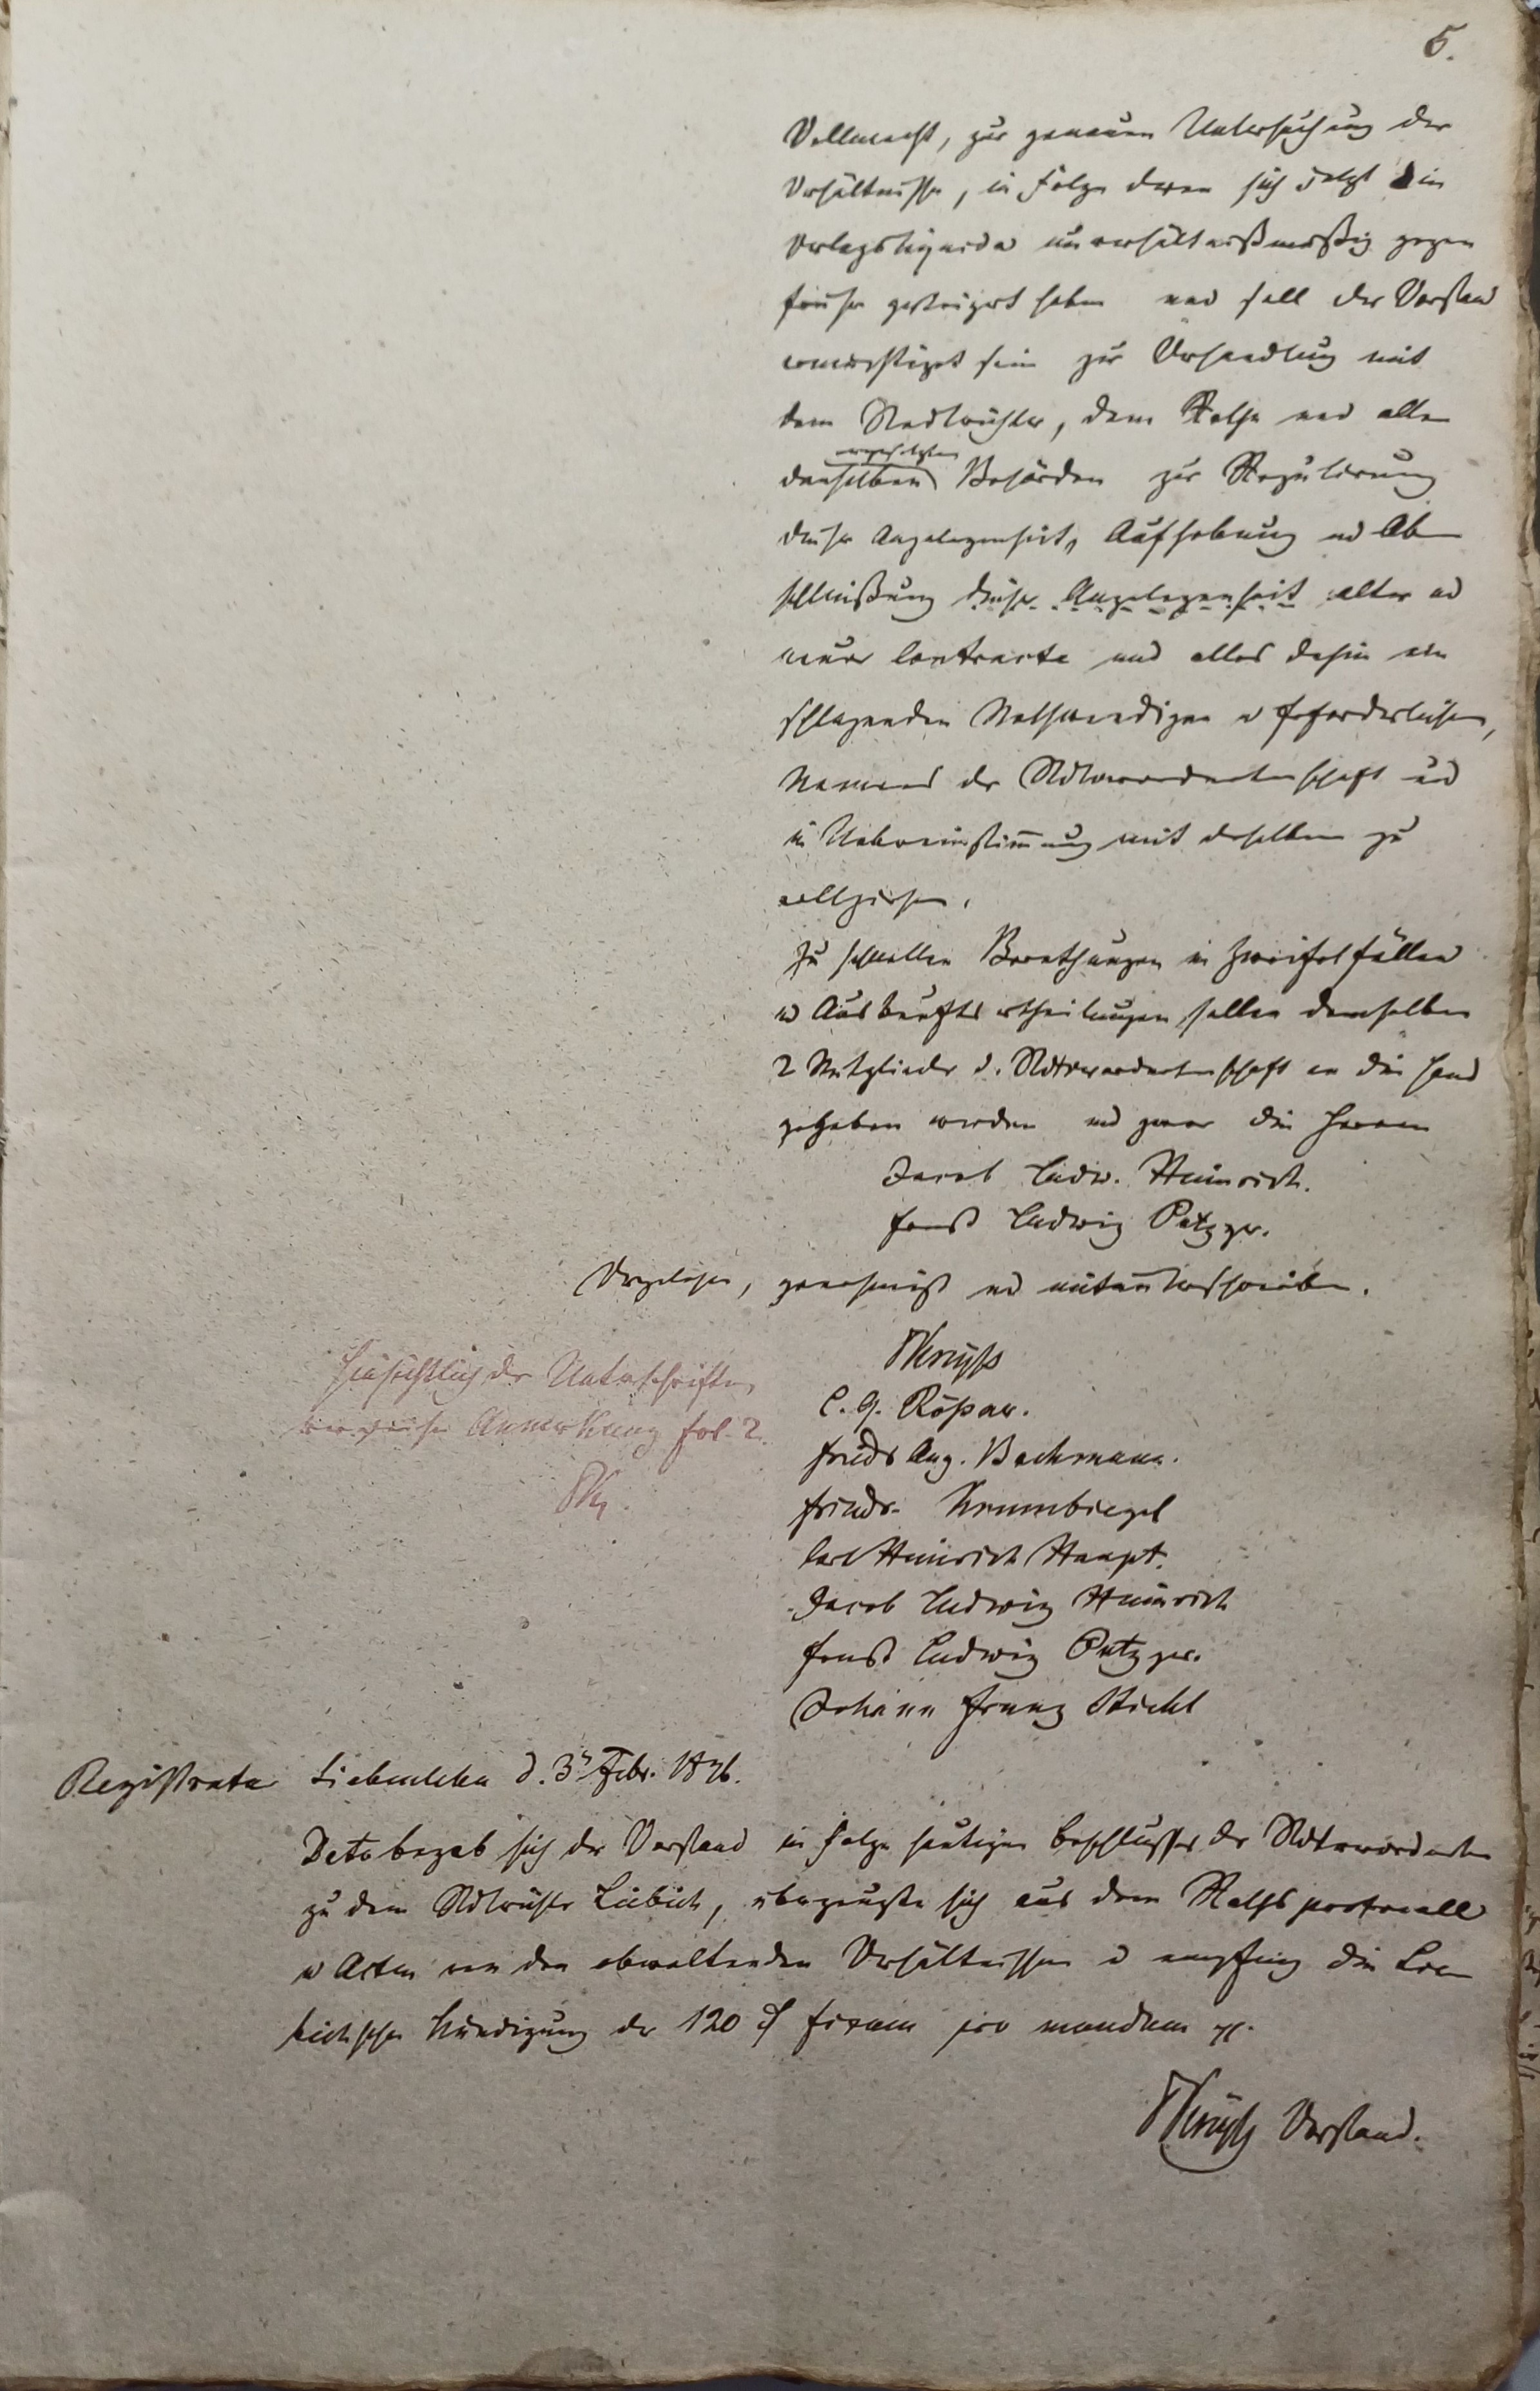 5.
Vollmacht, zur genauen Untersuchung der
Verhältnisse, in Folge deren sich jetzt die
Verlagsliquida unverhältnißmäßig gegen
früher gesteigert haben und soll der Vorstand
ermächtiget sein zur Verhandlung mit
dem Stadtrichter, dem Rathe und allen
vorgesetzten
denselben Behörden zur Regulirung
dieser Angelegenheit, Aufhebung und Ab
schließung dieser Angelegenheit alter und
neuer Contracte und alles dahin ein
schlagenden Nothwendigen u Erforderlichen,
Namens der Stdtverordnetenschaft und
in Uebereinstimmung mit derselben zu
vollziehen.
Zu schnellen Berathungen in Zweifelsfällen
u Auskunftsertheilungen sollen demselben
2 Mitglieder d. Stdtverordnetenschaft an die Hand
gegeben werden und zwar die Herren
Jacob Ludw. Heinrich.
Ernst Ludwig Petzger.
Vorgelesen, genehmigt und mitunterschrieben.
Hinsichtlich der Unterschriften
Anmerkung fol. 2.
C. G. Rößner.
Friedr Aug. Bachmann.
Friedr. Krumbiegel
Carl Heinrich Haupt.
Jacob Ludwig Heinrich
Ernst Ludwig Petzger.
Johann Franz Stichl
Registrata Siebenlehn d. 3 Febr. 1836.
Dato begab sich der Vorstand in Folge heutigen Beschlusses der Stdtverordneten
zu dem Stdtrichter Liebich, überzeugte sich aus dem Rathsprotocoll
u Acten von den obwaltenden Verhältnissen u empfing die
Kündigung der 120 fixum pro mundum
Vorstand.